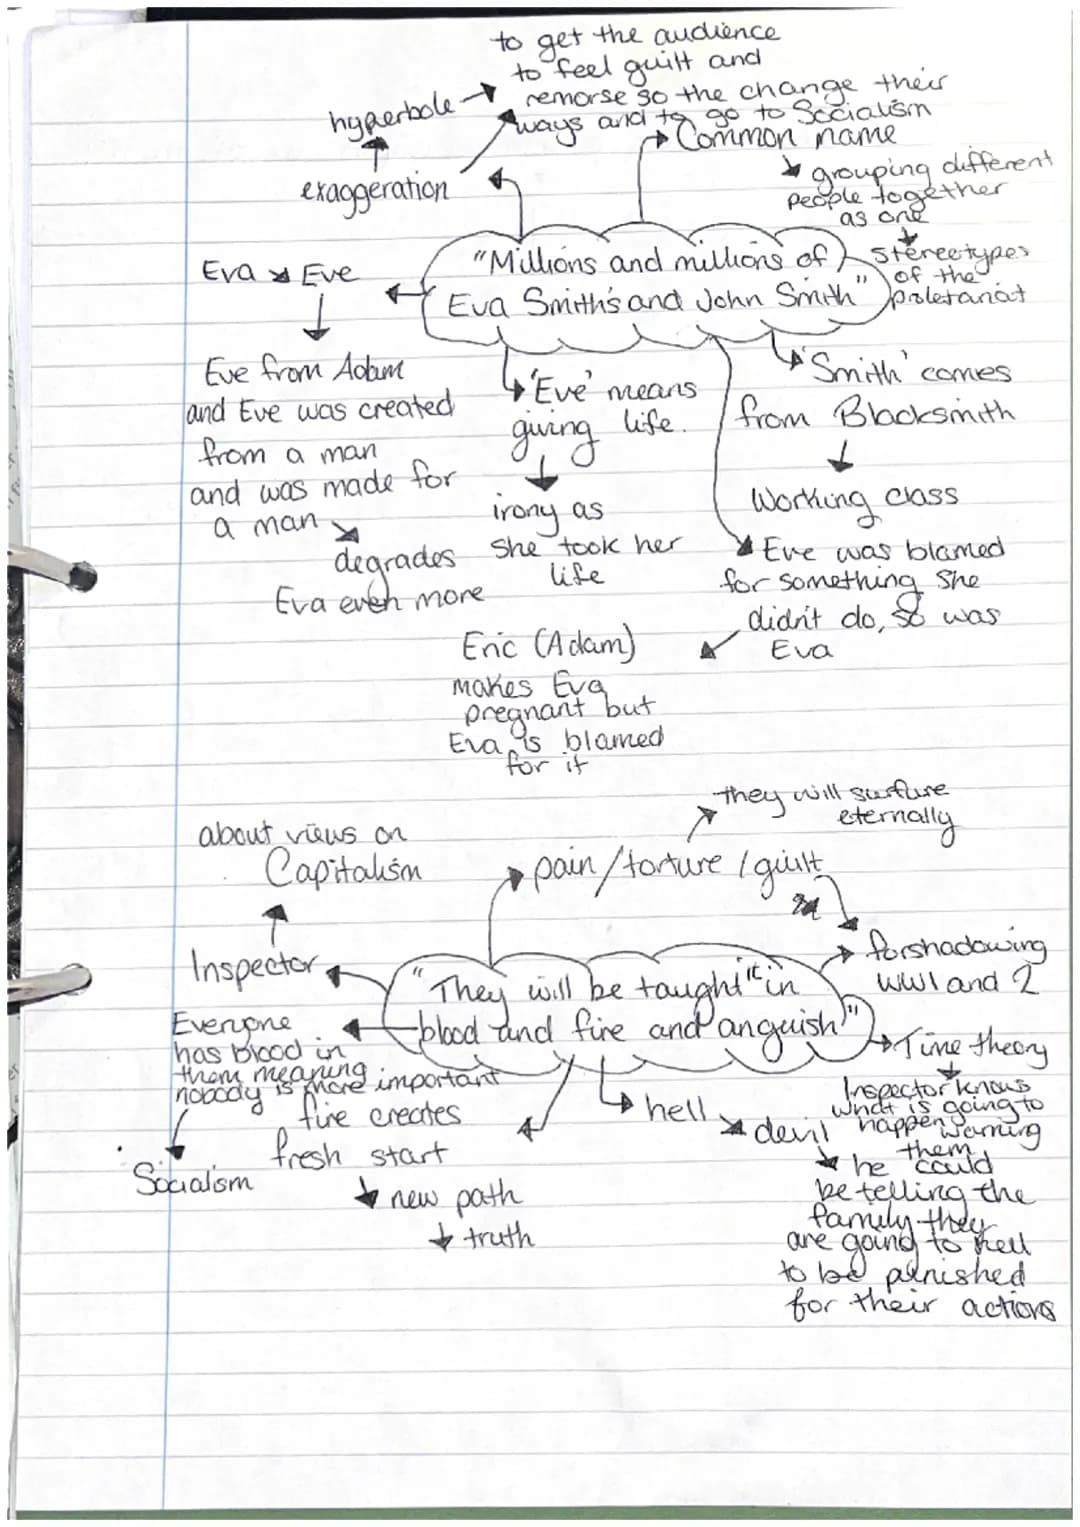 to get the audience
to feel guilt and
remorse so the change their
ways and to go to Socialism
hyperbole
exaggeration
Common name
grouping different
people together
as one
stereotypes
of the
proletariat
"Millions and millions of
Eva Smith's and John Smith"
Eva Eve
Eve from Adam
and Eve was created
from a man
and was made for
a man
degrades
Eva even more
'Eve' means
giving life.
irony as
she took her
life
'Smith' comes
from Blacksmith
Working class
Eve was blamed
for something she
didn't do, so was
Eva
Eric (Adam)
makes Eva
pregnant but
Eva is blamed
for it
they will surfure
eternally
pain/torture/guilt
about views on
Capitalism
Inspector
forshadowing
WW1 and 2
"They will be taught it in
blood and fire and anguish"
Everyone
has blood in
them meaning
nobody is more important
Socialism
fire creates
fresh start
new path
truth
hell
devil
he could
be telling the
family they
are going to hell
to be punished
for their actions
Time theory
Inspector knows
what is going to
happen warning
them